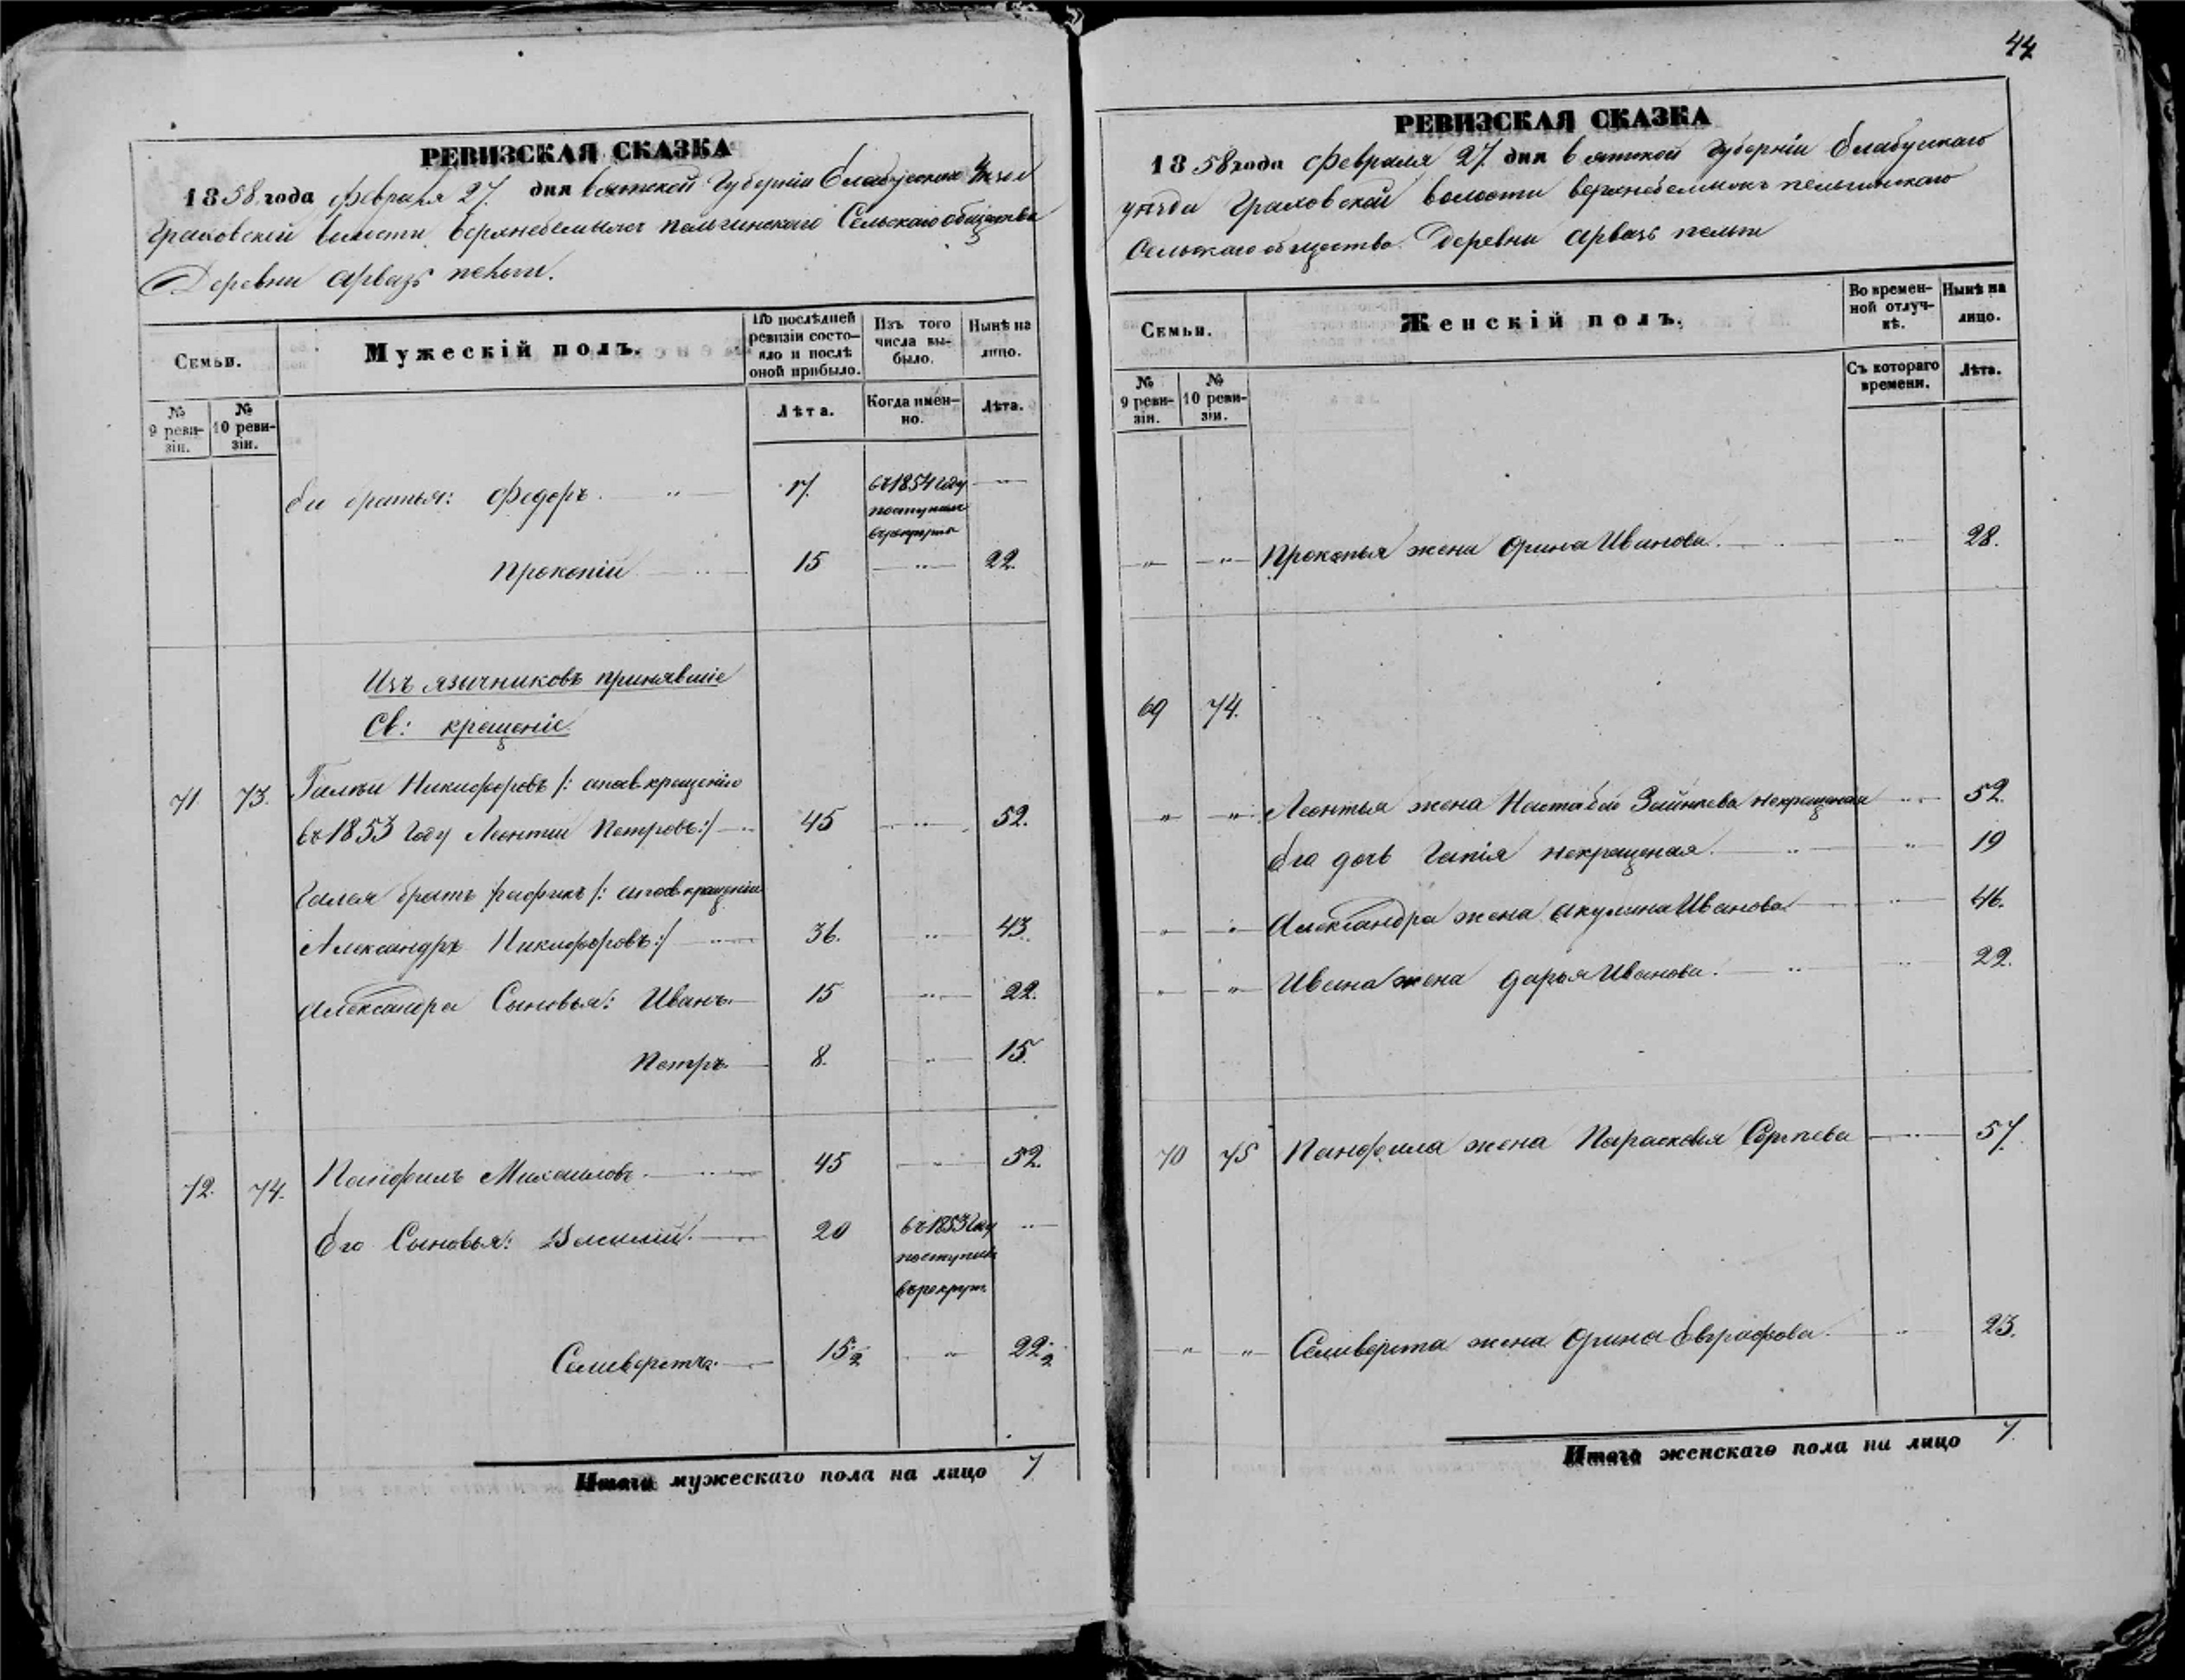 РЕВИЗСКАЯ СКАЗКА
1858 года Февраля 27. дня Вятской Губернiи Елабужскаго Уѣзда
Граховской волости Верхнебемыжъ пельгинскаго Сельскаго общества
Деревни Арвазъ пельги.
Семьи.
Мужескiй полъ.
По послѣдней ревизiи состояло и послѣ оной прибыло.
Изъ того числа выбыло.
Нынѣ на лицо.
№ 9 ревизiи.
№ 10 ревизiи.
Лѣта.
Когда именно.
Лѣта.
Ея братья: Федоръ. — " — 17. въ 1854 году — " —
поступилъ
въ рекруты
Прокопiй — " — 15 — " — 22.
Изъ язычниковъ принявшiе
Св: крещенiе
71. 73. Галѣй Никифоровъ /: а по св. крещенiю
въ 1853 году Леонтiй Петровъ :/ — " 45 — " — 52.
Галея братъ /: а по св. крещенiю
Александръ Никифоровъ :/ — " — 36. — " — 43.
Александра Сыновья: Иванъ. — 15 — " — 22.
Петръ. — 8. — " — 15.
72. 74. Панфилъ Михайловъ. — " — 45 — " — 52.
Его Сыновья: Василiй. — " — 20 въ 1853 году — " —
поступилъ
въ рекрут.
Селиверстъ. — " — 15 1/2 — " — 22 1/2
Итого мужескаго пола на лицо 7
44
РЕВИЗСКАЯ СКАЗКА
1858 года Февраля 27. дня Вятской Губернiи Елабужскаго
уѣзда Граховской волости Верхнебемыжъ пельгинскаго
Сельскаго общества. Деревни Арвазъ пельги
Семьи.
Женскiй полъ.
Во временной отлучкѣ.
Нынѣ на лицо.
№ 9 ревизiи.
№ 10 ревизiи.
Съ котораго времени.
Лѣта.
— " — — " — Прокопья жена Орина Иванова. — " — 28.
69 74.
— " — — " — Леонтья жена Зайнеева некрещеная — " — 52.
Его дочь Гапiя некрещеная. — " — 19
— " — — " — Александра жена Акулина Иванова — " — 46.
— " — — " — Ивана жена Дарья Иванова. — " — 22.
70 75 Панфила жена Парасковья Сергѣева — " — 57.
— " — — " — Селиверста жена Орина Евграфова. — " — 23.
Итого женскаго пола на лицо 7.